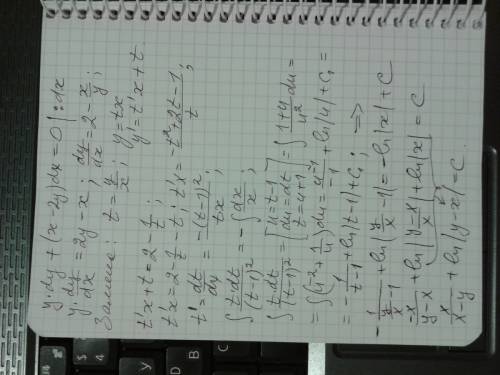 y·dy + (x-2y)dx = 0 | :dx
y·dy/dx = 2y - x; dy/dx = 2 - x/y;
Замена: t = y/x; y = tx
y' = t'x + t
t'x + t = 2 - 1/t;
t'x = 2 - 1/t - t; t'x = -(t²+2t-1)/t;
t' = dt/dx = -(t-1)²/(tx)
∫ t dt/(t-1)² = -∫ dx/x;
∫ t dt/(t-1)² = [u = t-1, du = dt, t = u+1] = ∫ (1+u)/u² du =
= ∫(u⁻² + 1/u)du = u⁻¹/-1 + ln|u| + C₁ =
= -1/(t-1) + ln|t-1| + C₁; =>
-1/(y/x - 1) + ln|y/x - 1| = -ln|x| + C
-x/(y-x) + ln|(y-x)/x| + ln|x| = C
x/(x-y) + ln|y-x| = C.